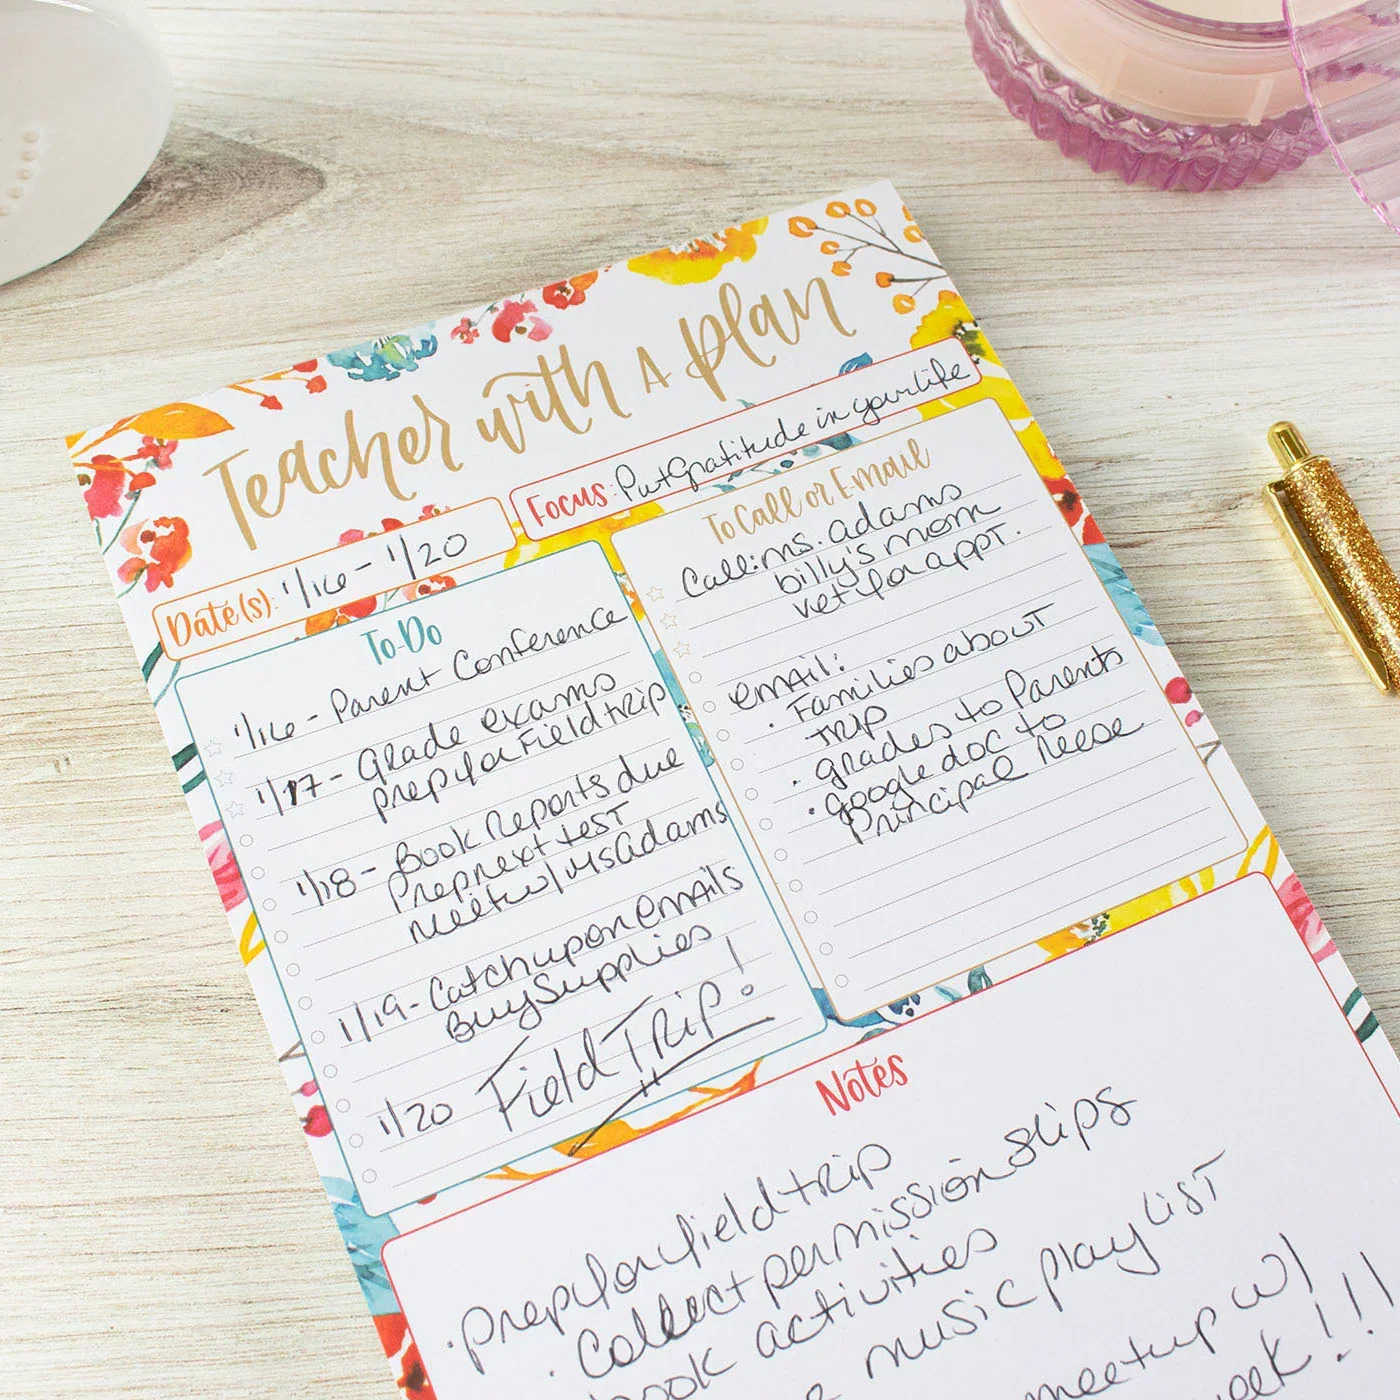 Teacher with a plan
Date(s): 1/16 - 1/20
Focus: Put Gratitude in your life
To-Do
1/16 - Parent Conference
1/17 - Grade exams
prep for Field trip
1/18 - Book Reports due
Prep next test
Meet w/ Ms Adams
1/19 - Catch up on emails
Buy Supplies
1/20 Field Trip!
To Call or E-mail
Call: ms. adams
billy's mom
vet for appt.
email:
• Families about
trip
• grades to Parents
• google doc to
Principal Reese
Notes
• prep for field trip
• Collect permission slips
book activities
music play list
meet up w/
!!!